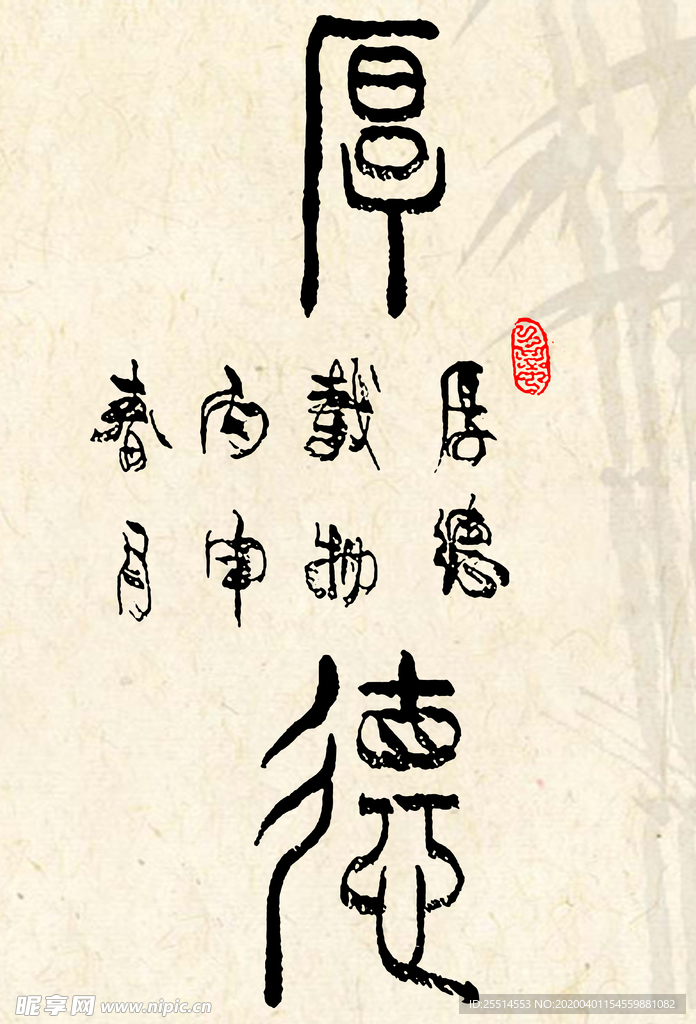 厚
德
厚德
载物
丙申
春月
昵享网 www.nipic.cn
ID:25514553 NO:20200401154559881082